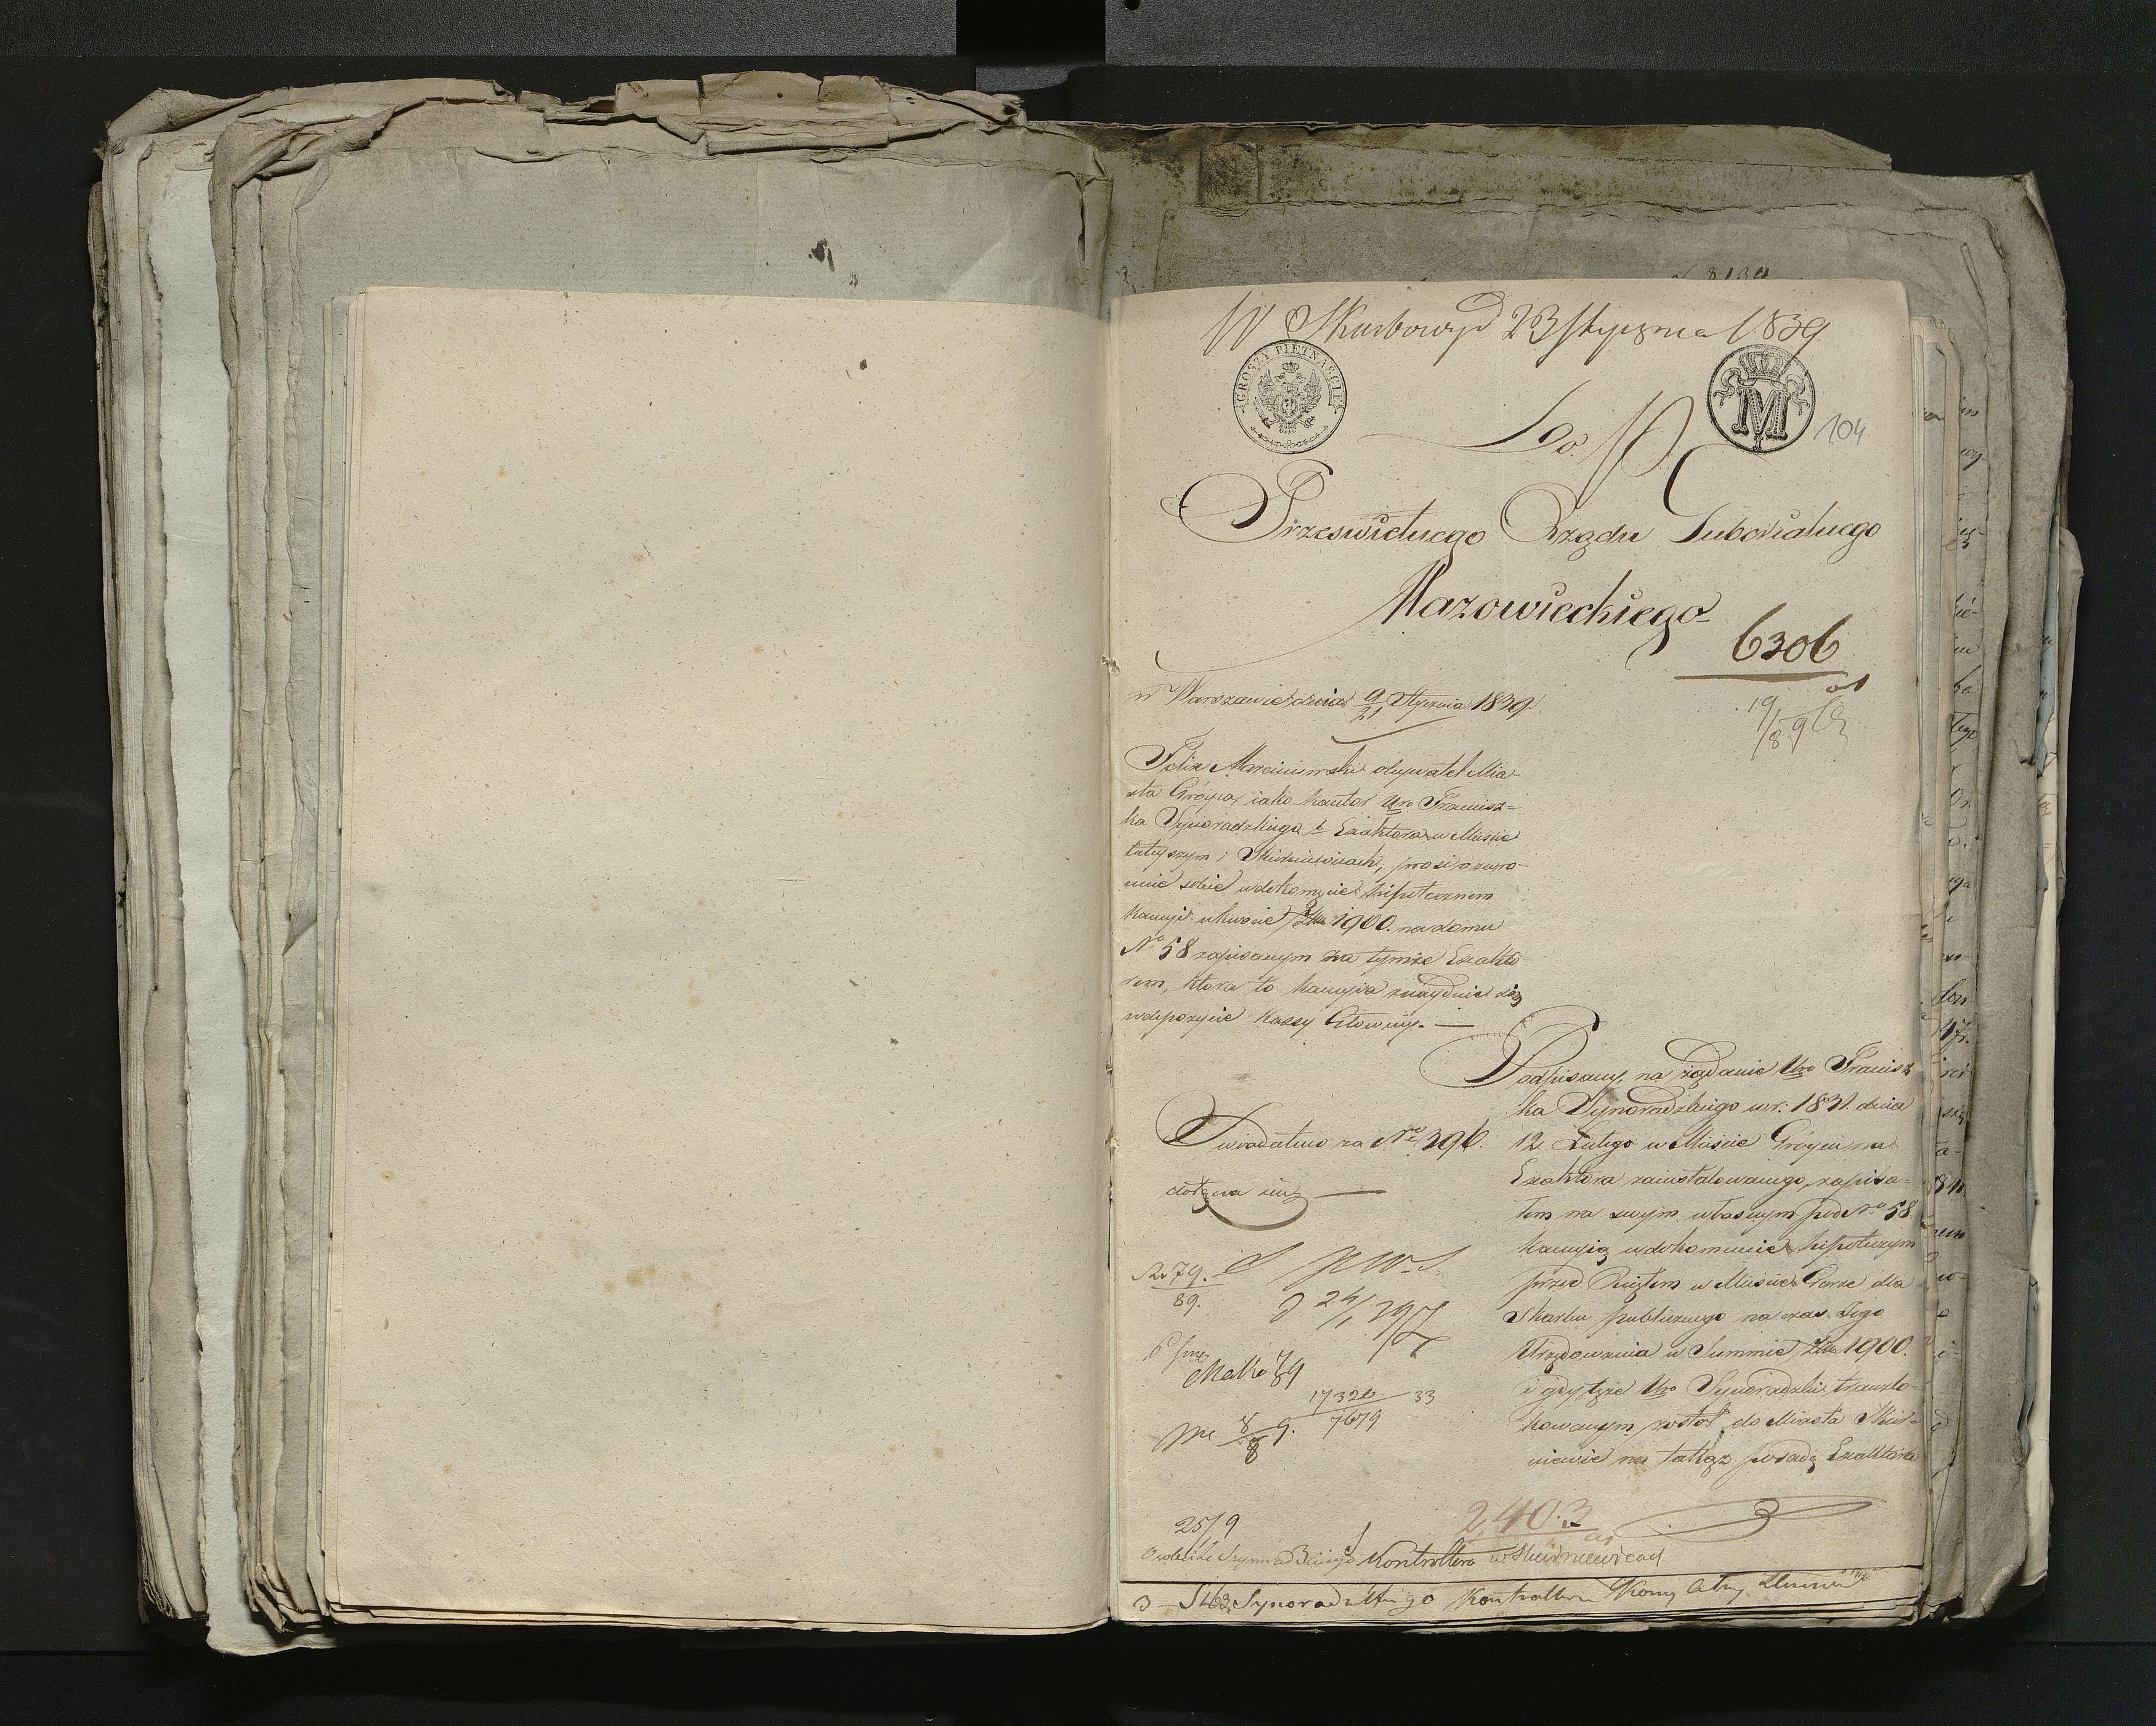 W Skarbowy 23 Stycznia 1839
GROSZY PIĘTNAŚCIE
M
104
Do
Prześwietnego Rządu Gubernialnego
Mazowieckiego
6306
w Warszawie dnia 9/21 Stycznia 1839.
19/1 89
Felix Marciniewski obywatel Mia-
sta Grójca, iako kautor Uro Francisz=
ka Synoradzkiego b. Exaktora w Mieście
tutejszym i Skierniewicach, prosi o zwro-
cenie sobie w dokomencie hipotecznem
kaucyi w kwocie Złp 1900. na domu
No 58 zapisanym za tymże Exakto
rem, ktora to kaucyia znayduie się
w depozycie Kassy Głowney. —
Podpisany, na żądanie Uro Francisz
ka Synoradzkiego w r. 1831. dnia
12 Lutego w Mieście Grójcu na
Exaktora zainstalowanego, zapisa=
łem na swym własnym pod No 58
kaucyią w dokomencie hipotecznym
przed Reiętem w Mieście Gorze dla
Skarbu publicznego na czas Jego
Urzędowania w Summie Złp 1900.
i gdy tyże Uro Synoradzki translo-
kowanym został do Miasta Skier-
niewic na takąż posadę Exaktora
Świadectwo za No 396.
dołącza się —
No 79.
89.
24/1 39
Matko 79
17326 33
7679
8/8 9.
2403
25/9
Synoradzkiego Kontrollera w Skierniewicach
3 — 5463 Synoradzkiego Kontrollera